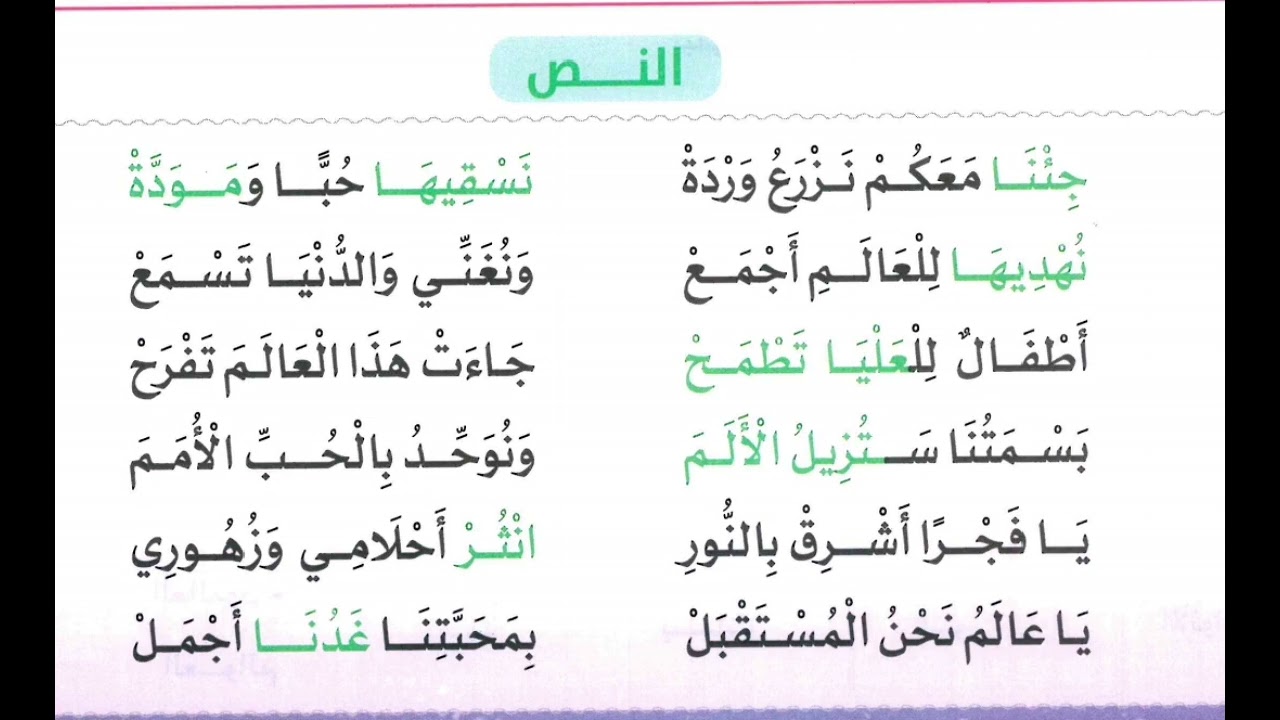 النص
جِئْنَا مَعَكُمْ نَزْرَعُ وَرْدَةْ نَسْقِيهَا حُبًّا وَمَوَدَّةْ
نُهْدِيهَا لِلْعَالَمِ أَجْمَعْ وَنُغَنِّي وَالدُّنْيَا تَسْمَعْ
أَطْفَالٌ لِلْعَلْيَا تَطْمَحْ جَاءَتْ هَذَا الْعَالَمَ تَفْرَحْ
بَسْمَتُنَا سَتُزِيلُ الْأَلَمَ وَنُوَحِّدُ بِالْحُبِّ الْأُمَمَ
يَا فَجْرًا أَشْرِقْ بِالنُّورِ انْثُرْ أَحْلَامِي وَزُهُورِي
يَا عَالَمُ نَحْنُ الْمُسْتَقْبَلْ بِمَحَبَّتِنَا غَدُنَا أَجْمَلْ